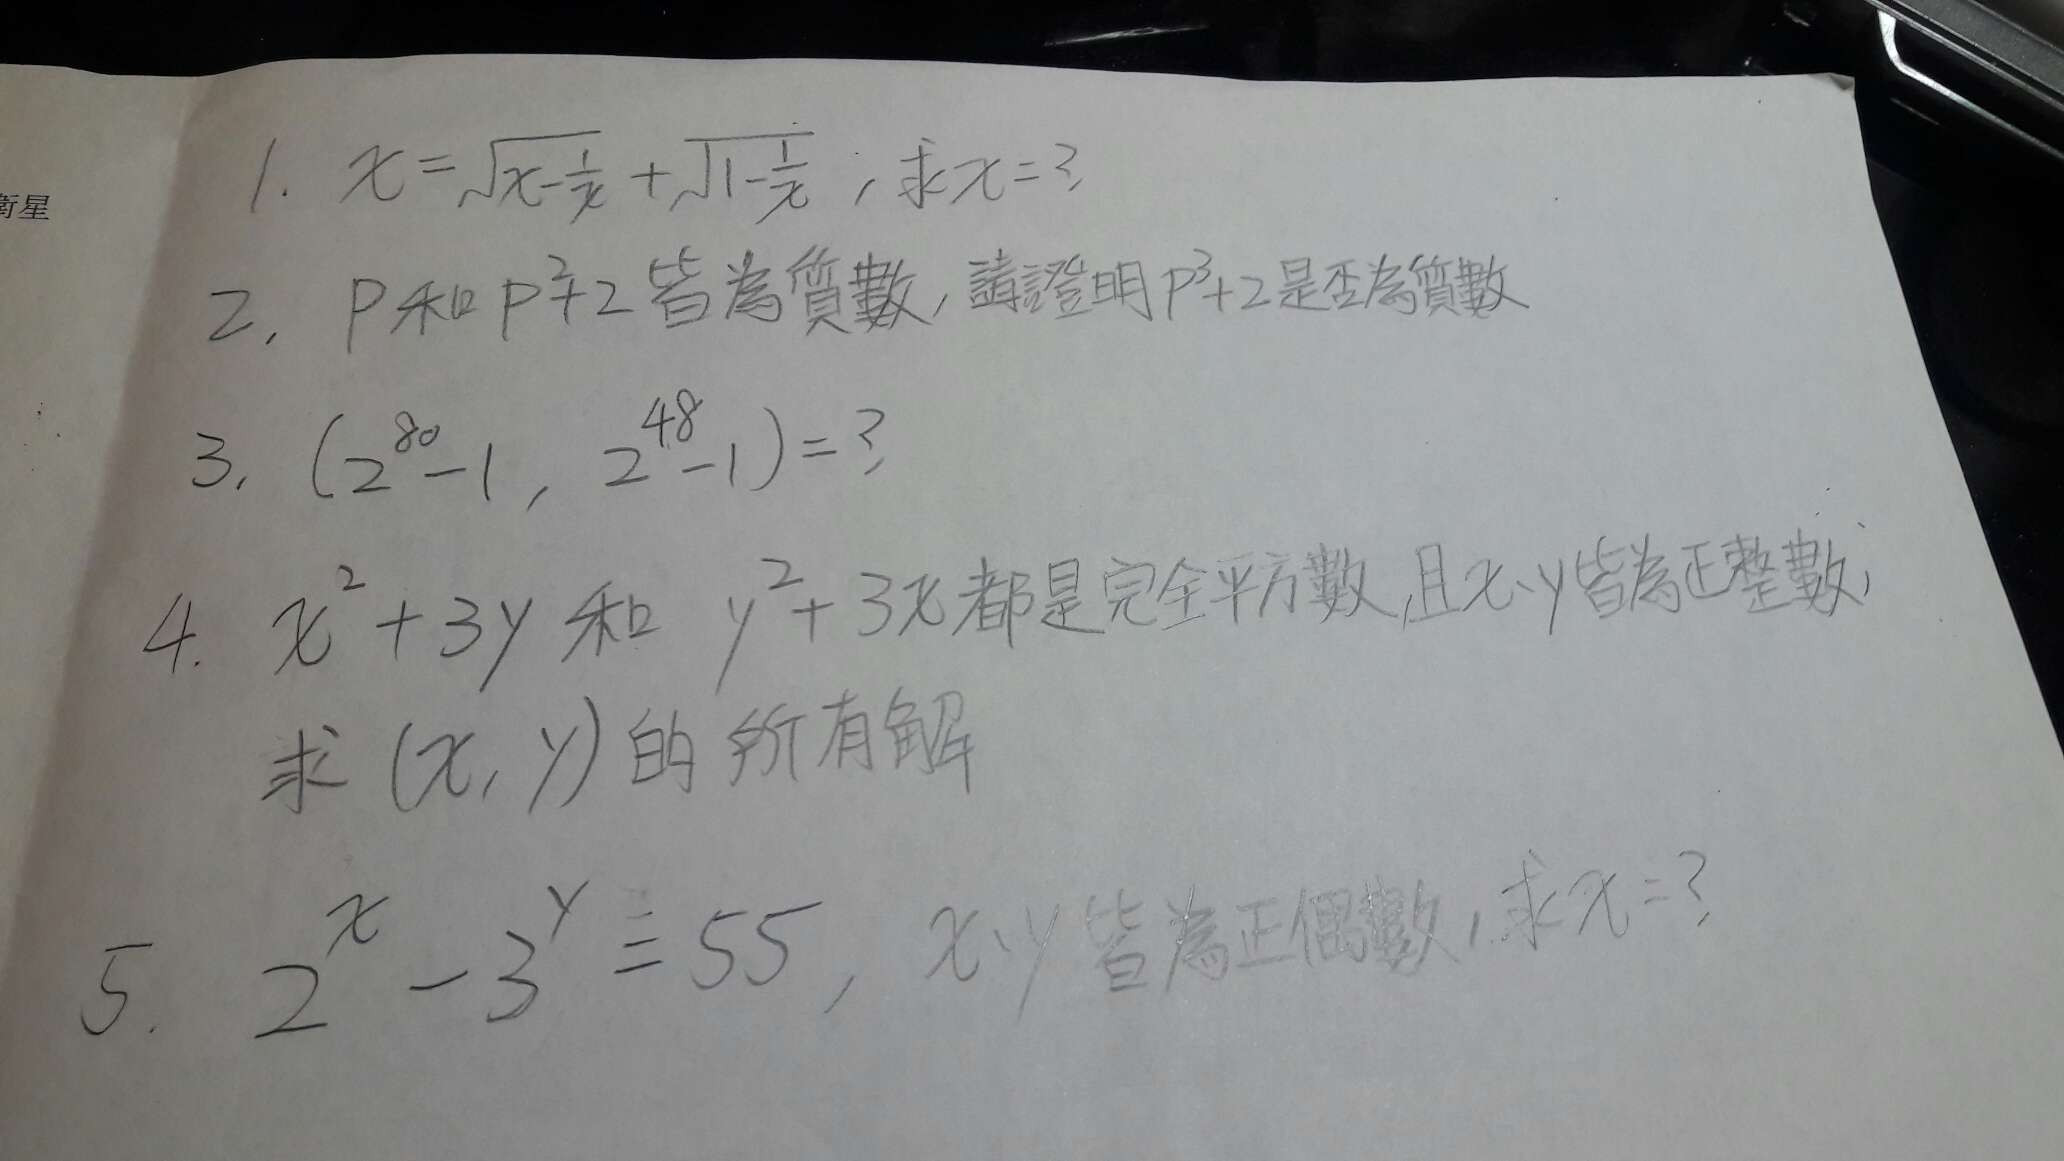 衛星
1. x=√(x-1/x)+√(1-1/x),求x=?
2. P和P²+2皆為質數,請證明P³+2是否為質數
3. (2⁸⁰-1, 2⁴⁸-1)=?
4. x²+3y和y²+3x都是完全平方數,且x、y皆為正整數,
求(x,y)的所有解
5. 2ˣ-3ʸ=55,x、y皆為正偶數,求x=?